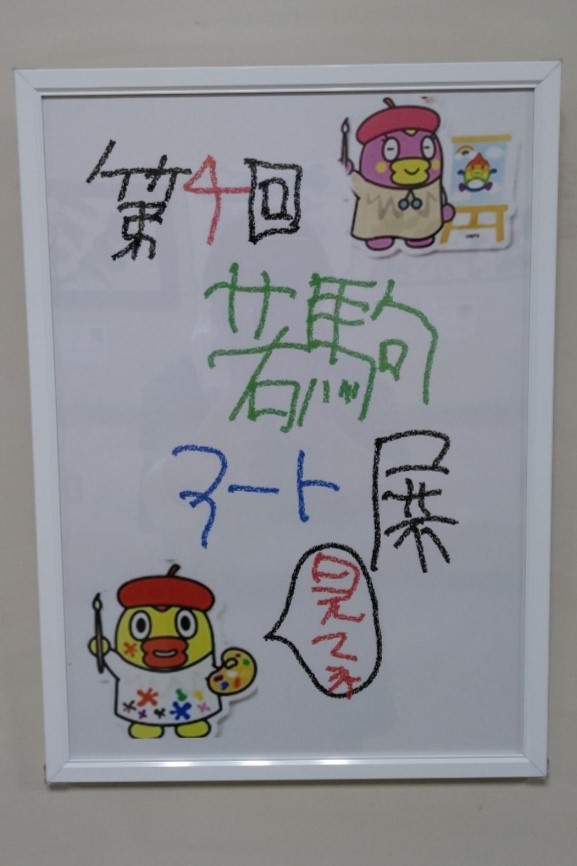 第4回
若駒
アート展
見てネ